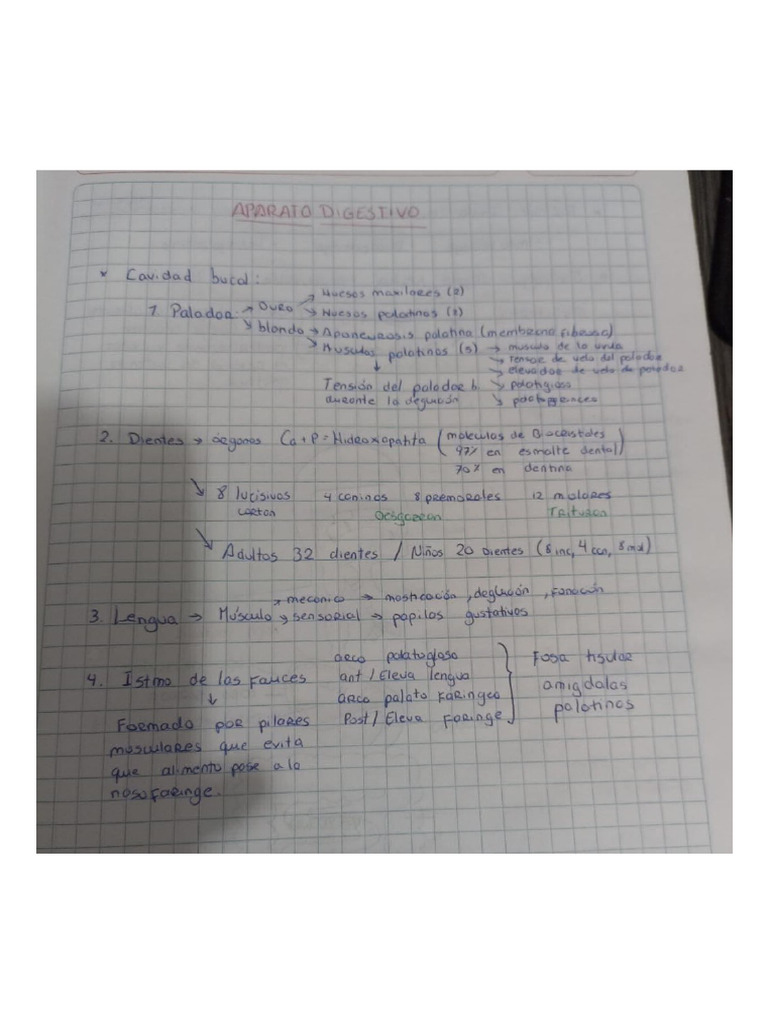 APARATO DIGESTIVO
* Cavidad bucal:
1. Paladar → Duro → Huesos maxilares (2)
→ Huesos palatinos (2)
→ blando → Aponeurosis palatina (membrana fibrosa)
→ Musculos palatinos (5) → musculo de la uvula
→ Tensor de velo del paladar
→ elevador de velo de paladar
→ palatogloso
→ palatofaringeo
↓
Tensión del paladar b.
durante la deglución
2. Dientes → organos Ca + P = Hidroxiapatita (moleculas de Biocristales
97% en esmalte dental)
70% en dentina
↘ 8 Incisivos 4 caninos 8 premorales 12 molares
cortan Desgarran Trituran
↘ Adultos 32 dientes / Niños 20 Dientes (8 inc, 4 can, 8 mol)
3. Lengua → Músculo → mecanico → masticación, deglución, fonación
→ sensorial → papilas gustativas
4. Istmo de las Fauces
↓
Formado por pilares
musculares que evita
que alimento pase a la
nasofaringe.
arco palatogloso
ant / Eleva lengua
arco palato Faringeo
Post / Eleva faringe
} Fosa tisular
amigdalas
palatinas